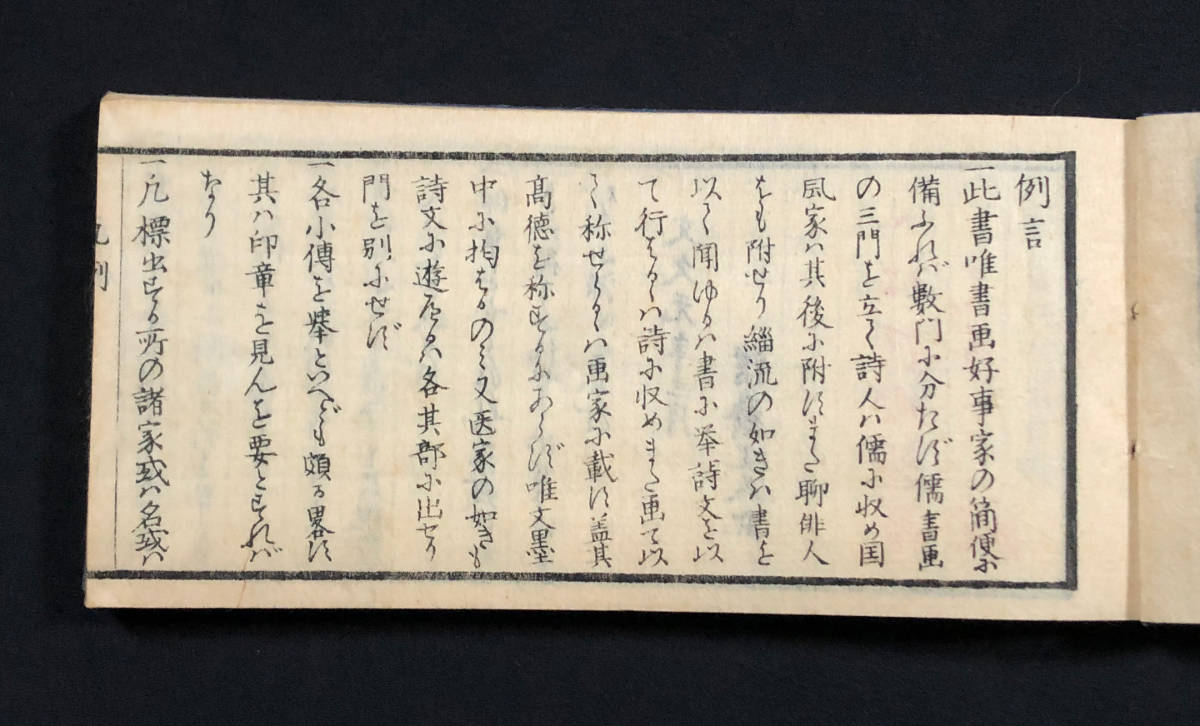 例言
一此書唯書画好事家の簡便に
備ふれバ数門に分たず儒書画
の三門を立て詩人ハ儒に収め国
風家ハ其後に附すまた聊俳人
をも附せり緇流の如きハ書を
以て聞ゆるハ書に挙詩文を以
て行はるゝハ詩に収めまた画て以
て称せらるゝハ画家に載す盖其
高徳を称するにあらず唯文墨
中に拘はるのミ又医家の如きも
詩文に遊ふるハ各其部に出せり
門を別にせず
一各小傳を挙といへども頗る畧す
其ハ印章を見んを要とすれバ
なり
一凡標出する所の諸家或ハ名或ハ
凡例